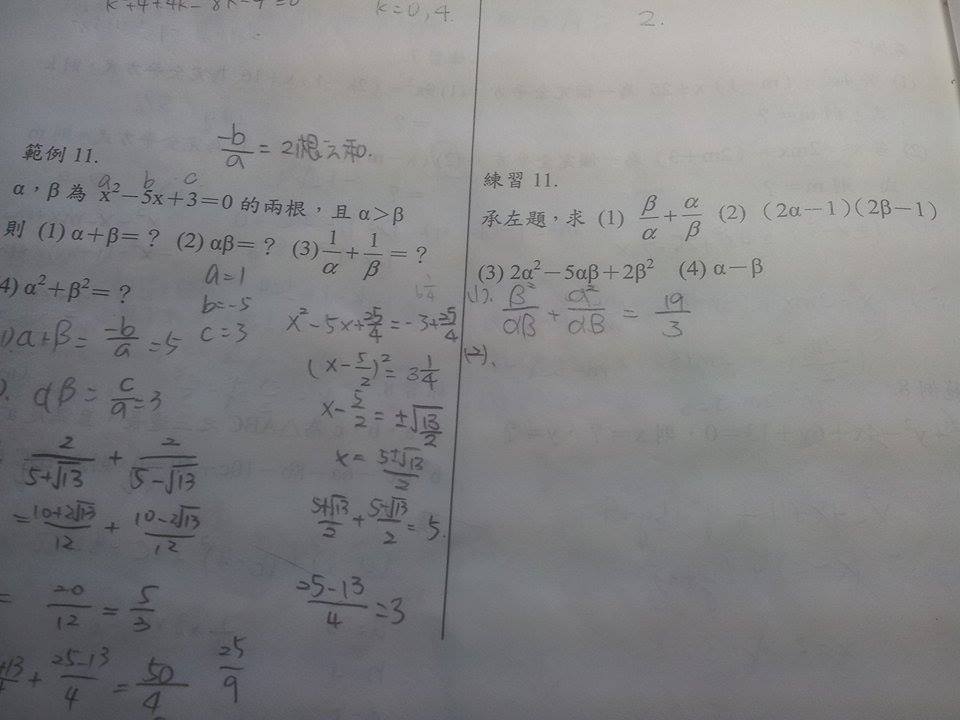 k²+4+4k-8k-4=0
k=0,4.
2.
-b/a = 2根之和.
範例 11.
a b c
α,β 為 x²-5x+3=0 的兩根,且 α>β
則 (1) α+β=? (2) αβ=? (3) 1/α + 1/β =?
4) α²+β²=?
a=1
b=-5
c=3
).α+β= -b/a =5
). αβ= c/a =3
2/(5+√13) + 2/(5-√13)
= (10+2√13)/12 + (10-2√13)/12
= 20/12 = 5/3
+ (25-13)/4 = 50/4
25/9
x²-5x+25/4=-3+25/4
(x-5/2)²=3 1/4
x-5/2=±√13/2
x= (5±√13)/2
(5+√13)/2 + (5-√13)/2 =5
(25-13)/4 =3
練習 11.
承左題,求 (1) β/α + α/β (2) (2α-1)(2β-1)
(3) 2α²-5αβ+2β² (4) α-β
(1). β²/αβ + α²/αβ = 19/3
(2).